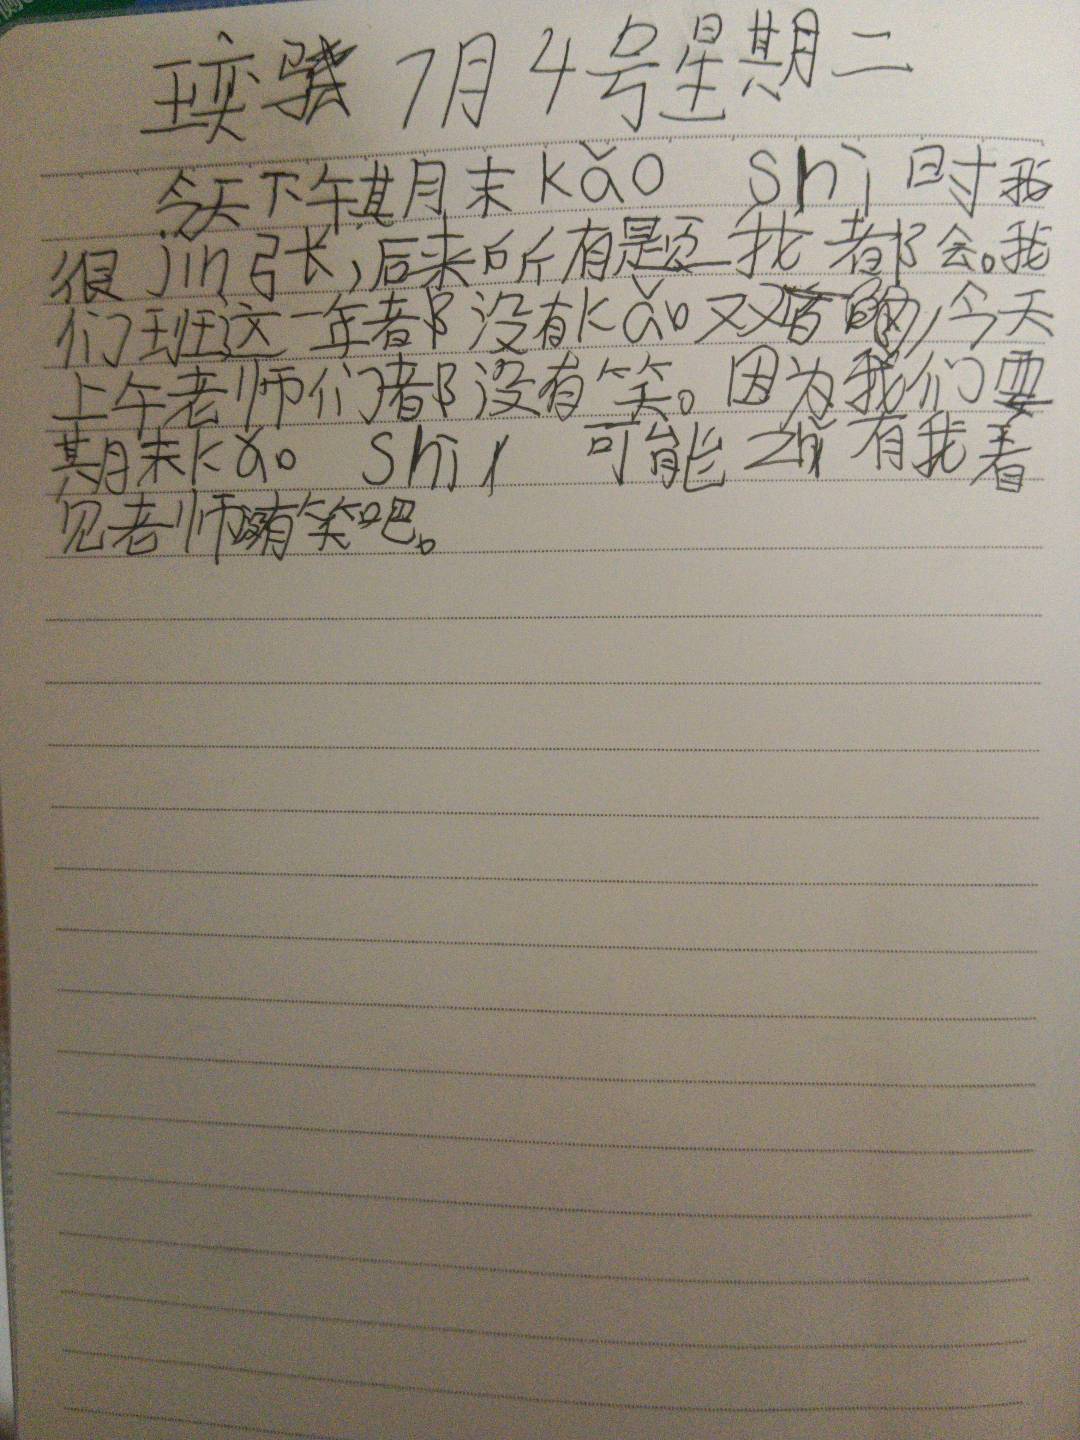 7月4号星期二
今天下午期月末kǎo shì 时我
很jǐn张,后来所有是题我都会。我
们班这一年都没有kǎo双百的,今天
上午老师们都没有笑。因为我们要
期末kǎo shì, 可能zhǐ有我看
见老师没有笑吧。